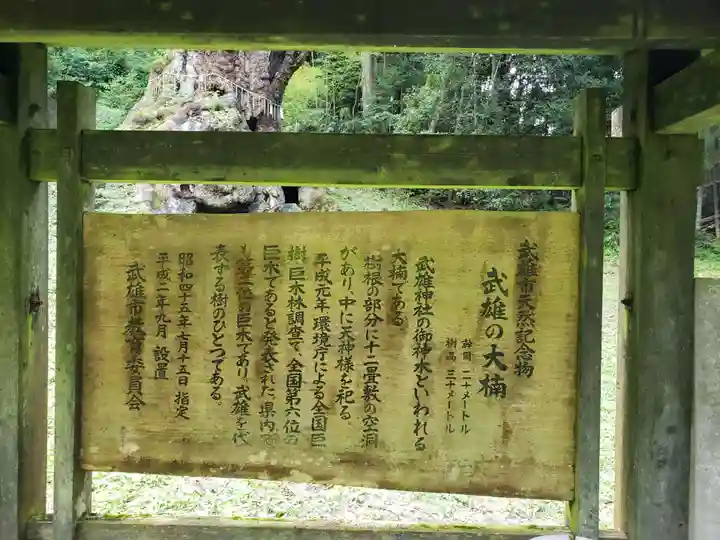 武雄市天然記念物
武雄の大楠
幹周 二十メートル
樹高 三十メートル
武雄神社の御神木といわれる
大楠である。
樹根の部分に十二畳敷の空洞
があり、中に天神様を祀る。
平成元年環境庁による全国巨
樹、巨木林調査で、全国第六位の
巨木であると発表された。県内で
も第二位の巨木であり、武雄を代
表する樹のひとつである。
昭和四十五年七月十五日 指定
平成二年九月 設置
武雄市教育委員会